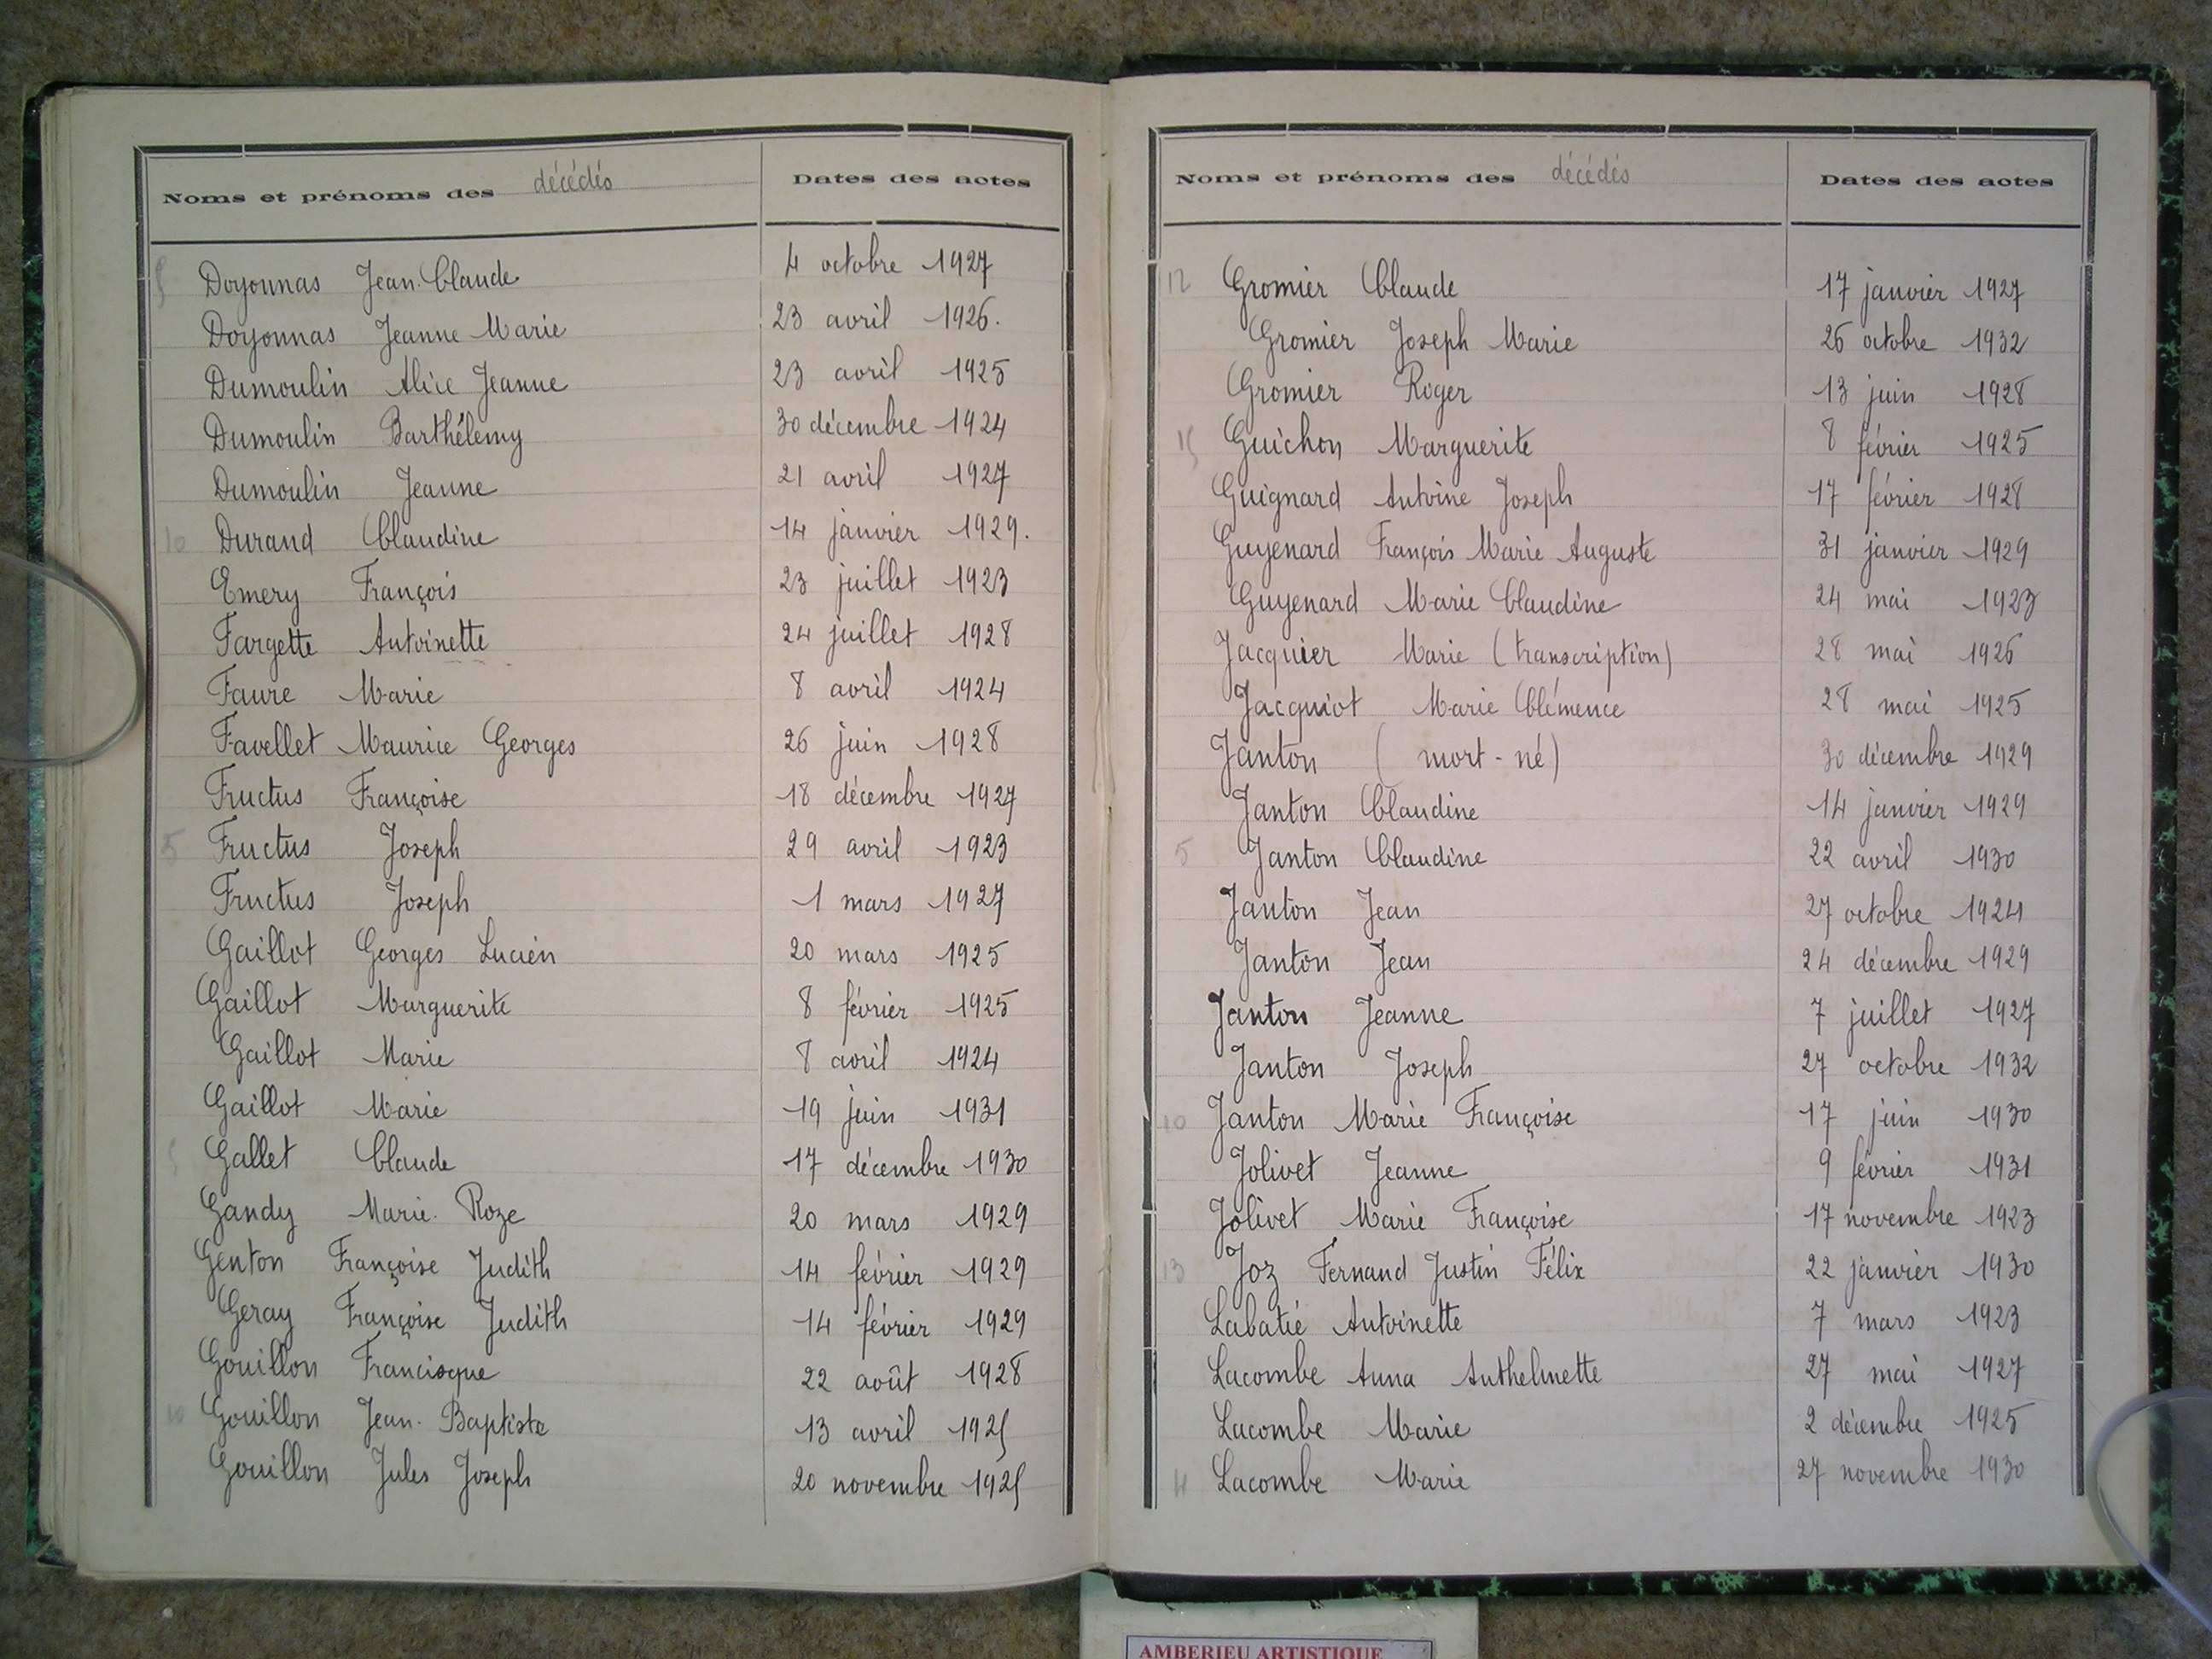 Noms et prénoms des décédés Dates des actes
Doyonnas Jean-Claude 4 octobre 1927
Doyonnas Jeanne Marie 23 avril 1926.
Dumoulin Alice Jeanne 23 avril 1925
Dumoulin Barthélemy 30 décembre 1924
Dumoulin Jeanne 21 avril 1927
10 Durand Claudine 14 janvier 1929.
Emery François 23 juillet 1923
Fargette Antoinette 24 juillet 1928
Faure Marie 8 avril 1924
Favellet Maurice Georges 26 juin 1928
Fructus Françoise 18 décembre 1927
5 Fructus Joseph 29 avril 1923
Fructus Joseph 1 mars 1927
Gaillot Georges Lucien 20 mars 1925
Gaillot Marguerite 8 février 1925
Gaillot Marie 8 avril 1924
Gaillot Marie 19 juin 1931
5 Gallet Claude 17 décembre 1930
Gandy Marie-Roze 20 mars 1929
Genton Françoise Judith 14 février 1929
Geray Françoise Judith 14 février 1929
Gouillon Francisque 22 août 1928
10 Gouillon Jean-Baptiste 13 avril 1925
Gouillon Jules Joseph 20 novembre 1925
Noms et prénoms des décédés Dates des actes
12 Gromier Claude 17 janvier 1927
Gromier Joseph Marie 26 octobre 1932
Gromier Roger 13 juin 1928
15 Guichon Marguerite 8 février 1925
Guignard Antoine Joseph 17 février 1928
Guyenard François Marie Auguste 31 janvier 1929
Guyenard Marie Claudine 24 mai 1923
Jacquier Marie (transcription) 28 mai 1926
Jacquiot Marie Clémence 28 mai 1925
Janton (mort-né) 30 décembre 1929
Janton Claudine 14 janvier 1929
5 Janton Claudine 22 avril 1930
Janton Jean 27 octobre 1924
Janton Jean 24 décembre 1929
Janton Jeanne 7 juillet 1927
Janton Joseph 27 octobre 1932
10 Janton Marie Françoise 17 juin 1930
Jolivet Jeanne 9 février 1931
Jolivet Marie Françoise 17 novembre 1923
13 Joz Fernand Justin Félix 22 janvier 1930
Labatié Antoinette 7 mars 1923
Lacombe Anna Anthelmette 27 mai 1927
Lacombe Marie 2 décembre 1925
4 Lacombe Marie 27 novembre 1930
AMBERIEU ARTISTIQUE